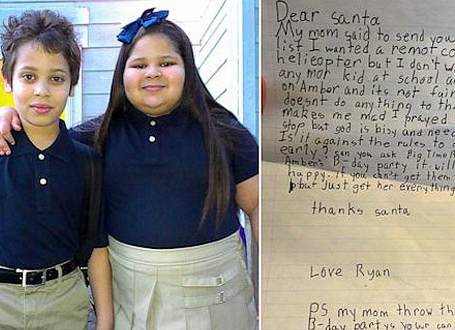 Dear santa
My mom said to send you
list I wanted a remot co
helicopter but I don't wa
any mor kid at school ar
on Amber and its not fair
doesnt do anything to the
makes me mad I prayed
stop but god is bisy and need
Is it against the rules to
early? can you ask Big Time R
Amber's B-day party it will
happy. if you can't get them
but just get her everything
thanks santa
Love Ryan
PS my mom throw th
B-day partys your can